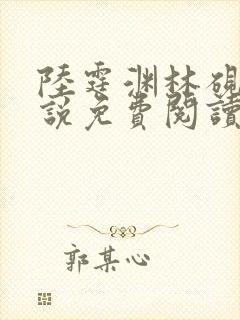 陸霆渊林硯
說免費閱讀
郭某心